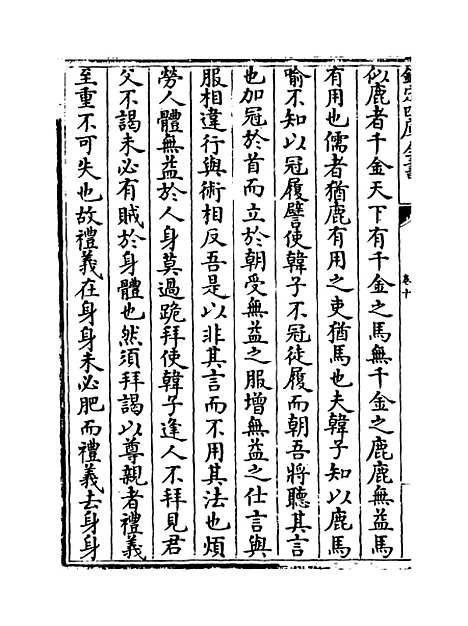 欽定四庫全書
卷十
似鹿者千金天下有千金之馬無千金之鹿鹿無益馬
有用也儒者猶鹿有用之吏猶馬也夫韓子知以鹿馬
喻不知以冠履譬使韓子不冠徒履而朝吾將聽其言
也加冠於首而立於朝受無益之服增無益之仕言與
服相違行與術相反吾是以非其言而不用其法也煩
勞人體無益於人身莫過跪拜使韓子逢人不拜見君
父不謁未必有賊於身體也然須拜謁以尊親者禮義
至重不可失也故禮義在身身未必肥而禮義去身身